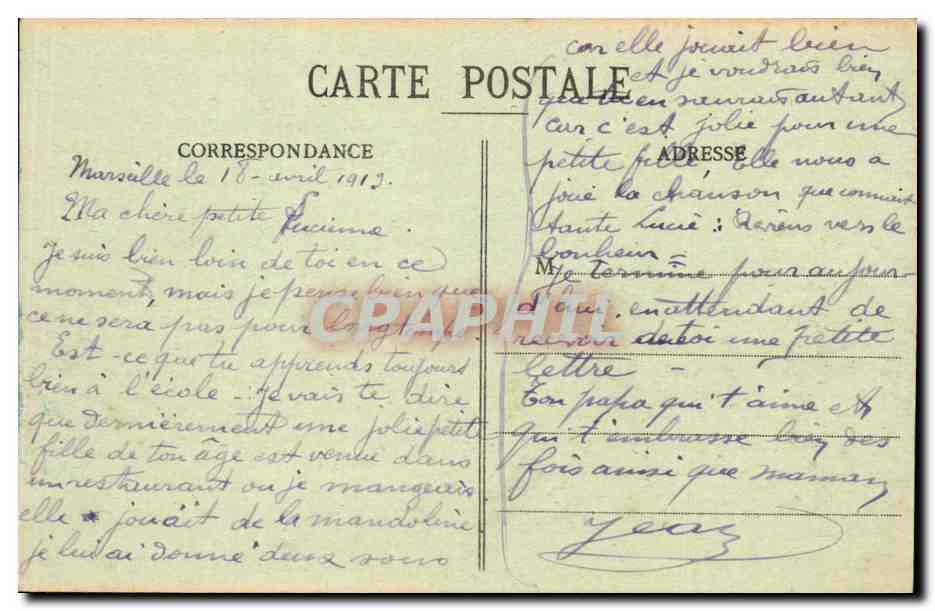 CARTE POSTALE
CORRESPONDANCE
Marseille le 18 - avril 1913.
Ma chère petite Lucienne.
Je suis bien loin de toi en ce
moment, mais je pense bien que
ce ne sera pas pour longtemps.
Est-ce que tu apprends toujours
bien à l'école - je vais te dire
que dernièrement une jolie petite
fille de ton âge est venue dans
un restaurant ou je mangeais
elle jouait de la mandoline
je lui ai donné deux sous
car elle jouait bien
et je voudrais bien
que tu en saurais autant
car c'est jolie pour une
petite fille, Elle nous a
ADRESSE
joué la chanson que connait
tante Lucie : vers le
bonheur =
M
je termine pour aujour-
d'hui, en attendant de
recevoir de toi une petite
lettre -
Ton papa qui t'aime et
qui t'embrasse bien des
fois ainsi que maman
Jean
CPAPHIL